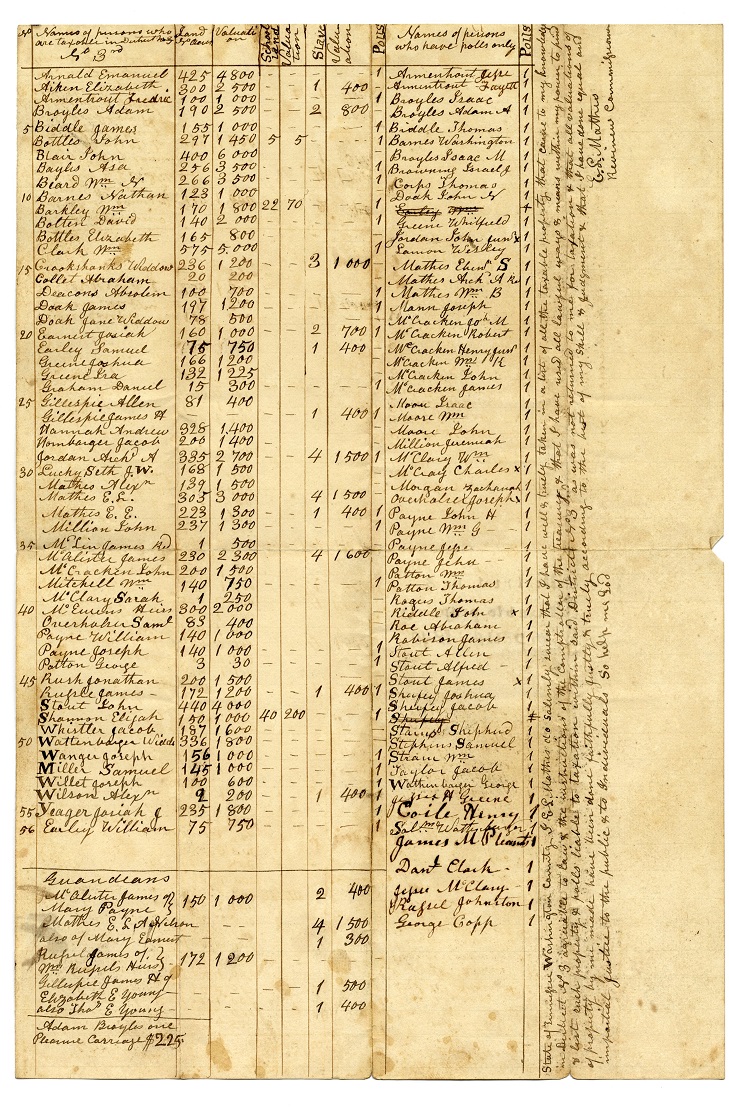 No Names of persons who are taxable in District No 3rd Land No Acres Valuation School Land Valuation Slaves Valuation Polls Names of persons who have polls only Polls
Arnald Emanuel 425 4800 1 Armenhout Jesse 1
Aiken Elizabeth 300 2500 1 400 Armentrout Fayett 1
Armentrout Fredric 100 1000 1 Broyles Isaac 1
Broyles Adam 190 2500 2 800 Broyles Adam A 1
5 Biddle James 155 1000 1 Biddle Thomas 1
Bottles John 297 1450 5 5 1 Barnes Washington 1
Blair John 400 6000 Broyles Isaac M 1
Bayles Asa 256 3500 Browning Israel J 1
Beard Wm N 266 3500 Corps Thomas 1
10 Barnes Nathan 123 1000 Doak John N 1
Barkley Wm 170 1800 22 70 1 Earley Wm
Bolten David 140 2000 Greene Whitfield 1
Bottles Elizabeth 165 800 Jordan John Junr x 1
Clark Wm 575 5000 1 Lamon Wesley 1
15 Crookshanks Widdow 236 1200 3 1000 Mathes Eben S 1
Collet Abraham 20 200 Mathes Arch A 1
Deacons Absolem 100 700 1 Mathes Wm B 1
Doak James 197 1200 1 Mann Joseph 1
Doak Jane Widdow 78 500 McCracken M 1
20 Earnest Josiah 160 1000 2 700 1 McCracken Robert 1
Earley Samuel 75 750 1 400 McCracken Henry Junr 1
Greene Joshua 166 1200 McCracken Wm R 1
Greene Ira 132 1225 McCracken John 1
Graham Daniel 15 300 1 McCracken James 1
25 Gillespie Allen 81 400 Moore Isaac 1
Gillespie James H 1 400 1 Moore Wm 1
Hannah Andrew 328 1400 Moore John 1
Hornbarger Jacob 200 1400 Million Jeremiah 1
Jordan Archd A 335 2700 4 1500 1 McClary Wm 1
30 Lucky Seth J.W. 168 1500 McCray Charles x 1
Mathes Alexr 139 1500 Morgan Zachariah 1
Mathes E.S. 305 3000 4 1500 Overholser Joseph x 1
Mathes E. E. 223 1300 1 400 1 Payne John H 1
Million John 237 1300 1 Payne Wm G 1
35 McLin James 1 500 Payne Jesse 1
McAlister James 230 2300 4 1600 Payne John 1
McCracken John 200 1500 Patton Wm 1
Mitchell Wm 140 750 1 Patton Thomas 1
McClary Sarah 1 250 Rogus Thomas 1
40 McEwens Heirs 300 2000 Riddle John x 1
Overholser Saml 83 400 Roe Abraham 1
Payne William 140 1000 Robison James 1
Payne Joseph 140 1000 1 Stout Allen 1
Patton George 3 30 1 Stout Alfred 1
45 Rush Jonathan 200 1500 Stout James x 1
Ruple James 172 1200 1 400 1 Shufey Joshua 1
Stout John 440 4000 Shufey Jacob 1
Shannon Elijah 150 1000 40 200 1 Shufey
Whistler Jacob 187 1600 Starnes Shepherd 1
50 Wattenbarger Widdow 336 1800 Stephens Samuel 1
Wanger Joseph 156 1000 1 Strain Wm 1
Miller Samuel 145 1000 1 Taylor Jacob 1
Willet Joseph 100 600 1 Wattenbarger George 1
Wilson Alexr 2 200 1 400 1 H Greene 1
55 Yeager Josiah J 235 1800 1 Coile Henry 1
56 Earley William 75 750 1 Solmn Wattenbarger 1
James M Pleasants 1
Danl Clark 1
Jesse McClary 1
Rufsel Johnston 1
George Copp 1
Guardeans
McAlister James of Mary Payne 150 1000 2 400
Mathes E. S. A Nelson 4 1500
also of Mary Earnest 1 300
Rufsel James of Wm Rufsels Heirs 172 1200
Gillespie James H of Elizabeth E Young 1 500
also Thos E Young 1 400
Adam Broyles one
Pleasure Carriage $225
State of Tennessee Washington County I E. S. Mathes do solemnly swear that I have well & truly taken in a list of all the taxable property that came to my knowledge
in District No 3 agreeable to law & the instructions of the Comptroller of the Treasury & that I have used all lawful ways & means within my power to find
& list such property & polls liable to taxation within said District No 3 as was not returned to me for taxation & that all valuations of
property by me made have been done faithfully justly & truly according to the best of my skill & judgment & that I have done equal and
impartial justice to the public & to Individuals So help me God
E. S. Mathes
Revinew Commissioner